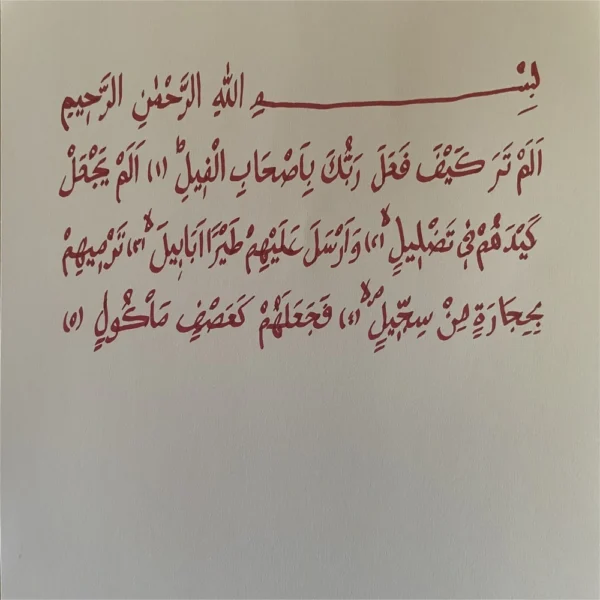 بِسْــــــــــــمِ اللّٰهِ الرَّحْمٰنِ الرَّحِيمِ
اَلَمْ تَرَ كَيْفَ فَعَلَ رَبُّكَ بِاَصْحَابِ الْفِيلِ ؕ (١) اَلَمْ يَجْعَلْ
كَيْدَهُمْ فِي تَضْلِيلٍ ۙ (٢) وَاَرْسَلَ عَلَيْهِمْ طَيْرًا اَبَابِيلَ ۙ (٣) تَرْمِيهِمْ
بِحِجَارَةٍ مِنْ سِجِّيلٍ ۙ (٤) فَجَعَلَهُمْ كَعَصْفٍ مَاْكُولٍ (٥)